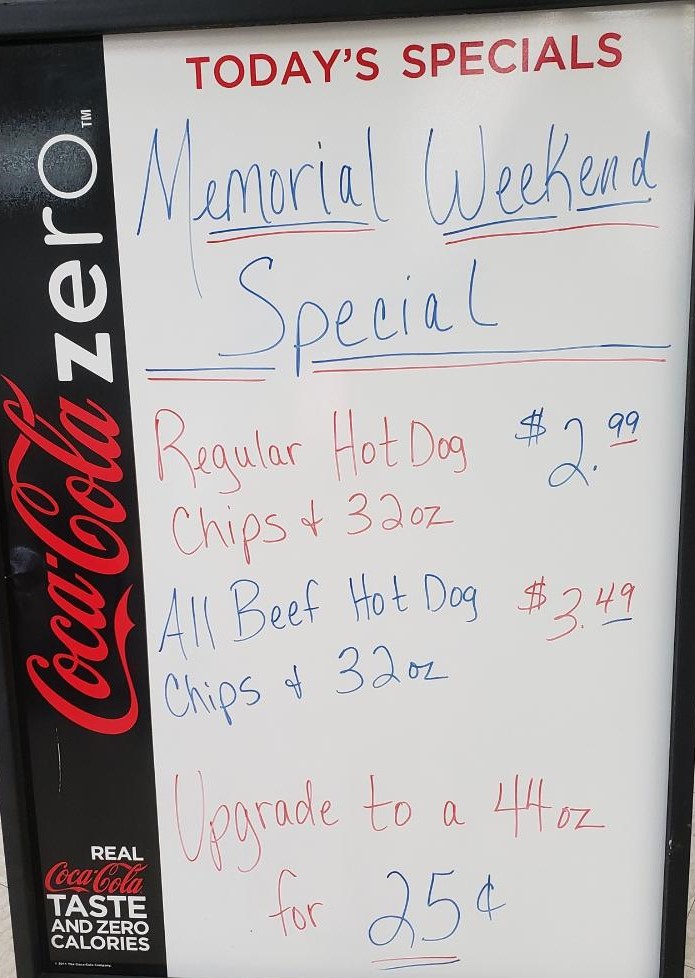 TODAY'S SPECIALS
Memorial Weekend
Special
Regular Hot Dog $2.99
Chips & 32oz
All Beef Hot Dog $3.49
Chips & 32oz
Upgrade to a 44oz
for 25¢
Coca-Cola zero™
REAL
Coca-Cola
TASTE
AND ZERO
CALORIES